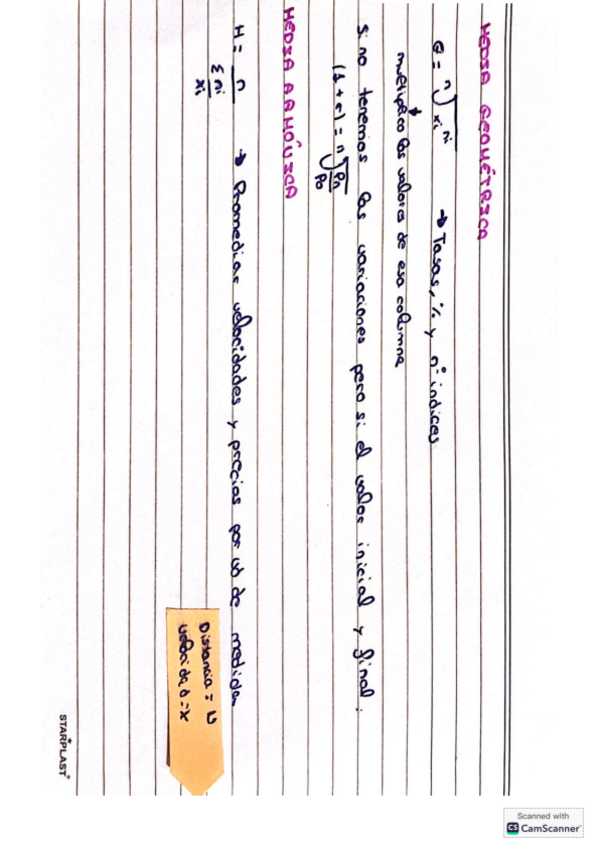 MEDIA GEOMÉTRICA
G = n√xi^ni → Tasas, % y nº indices
multiplico los valores de esa columna
Si no tenemos las variaciones pero si el valor inicial y final:
(1 + r) = n√Pn/P0
MEDIA ARMÓNICA
H = n / Σ ni/xi → Promediar velocidades y precios por ud de medida
Distancia = N
velocidad = x
STARPLAST
Scanned with
CS CamScanner